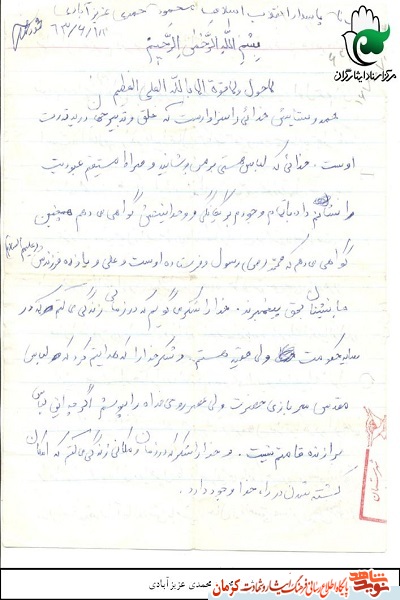 پاسدار انقلاب اسلامی محمود محمدی عزیزآبادی
۶۳/۶/۱۳
مرکز اسناد ایثارگران
بِسْمِ اللّهِ الرَّحْمنِ الرَّحِيمْ
لاحول ولاقوة الا بالله العلی العظیم
حمد و ستایش خدائی را سزاوار است که خلق و تدبیر جهان در ید قدرت
اوست. خدائی که لباس هستی بر من پوشانید و صراط مستقیم عبودیت
را نشانم داد با تمام وجودم بر یگانگی و وحدانیتش گواهی می دهم همچنین
گواهی می دهم که محمد (ص) رسول و فرستاده اوست و علی و یازده فرزندش (علیهم السلام)
جانشینان بحق پیغمبرند. خدا را شکر می گویم که در زمانی زندگی می کنم که در
سایه حکومت ولی فقیه هستم. و شکر خدا را که هدایتم کرد که لباس
مقدس سربازی حضرت ولی عصر روحی فداه را بپوشم اگر چه این لباس
برازنده قامتم نیست. و خدا را شکر که در زمان و مکانی زندگی می کنم که امکان
کشته شدن در راه خدا وجود دارد.
محمدی عزیزآبادی
نوید شاهد
پایگاه اطلاع رسانی فرهنگ ایثار و شهادت کرمان